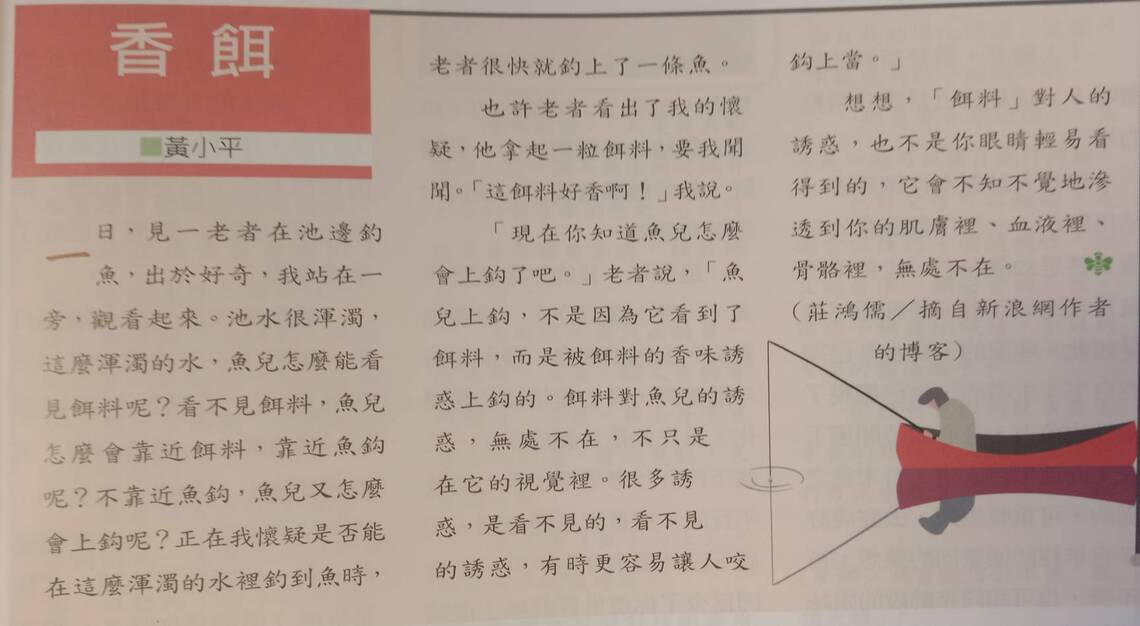 香餌
黃小平
一日，見一老者在池邊釣
魚，出於好奇，我站在一
旁，觀看起來。池水很渾濁，
這麼渾濁的水，魚兒怎麼能看
見餌料呢？看不見餌料，魚兒
怎麼會靠近餌料，靠近魚鈎
呢？不靠近魚鈎，魚兒又怎麼
會上鈎呢？正在我懷疑是否能
在這麼渾濁的水裡釣到魚時，
老者很快就釣上了一條魚。
也許老者看出了我的懷
疑，他拿起一粒餌料，要我聞
聞。「這餌料好香啊！」我說。
「現在你知道魚兒怎麼
會上鈎了吧。」老者說，「魚
兒上鈎，不是因為它看到了
餌料，而是被餌料的香味誘
惑上鈎的。餌料對魚兒的誘
惑，無處不在，不只是
在它的視覺裡。很多誘
惑，是看不見的，看不見
的誘惑，有時更容易讓人咬
鈎上當。」
想想，「餌料」對人的
誘惑，也不是你眼睛輕易看
得到的，它會不知不覺地滲
透到你的肌膚裡、血液裡、
骨骼裡，無處不在。
（莊鴻儒／摘自新浪網作者
的博客）